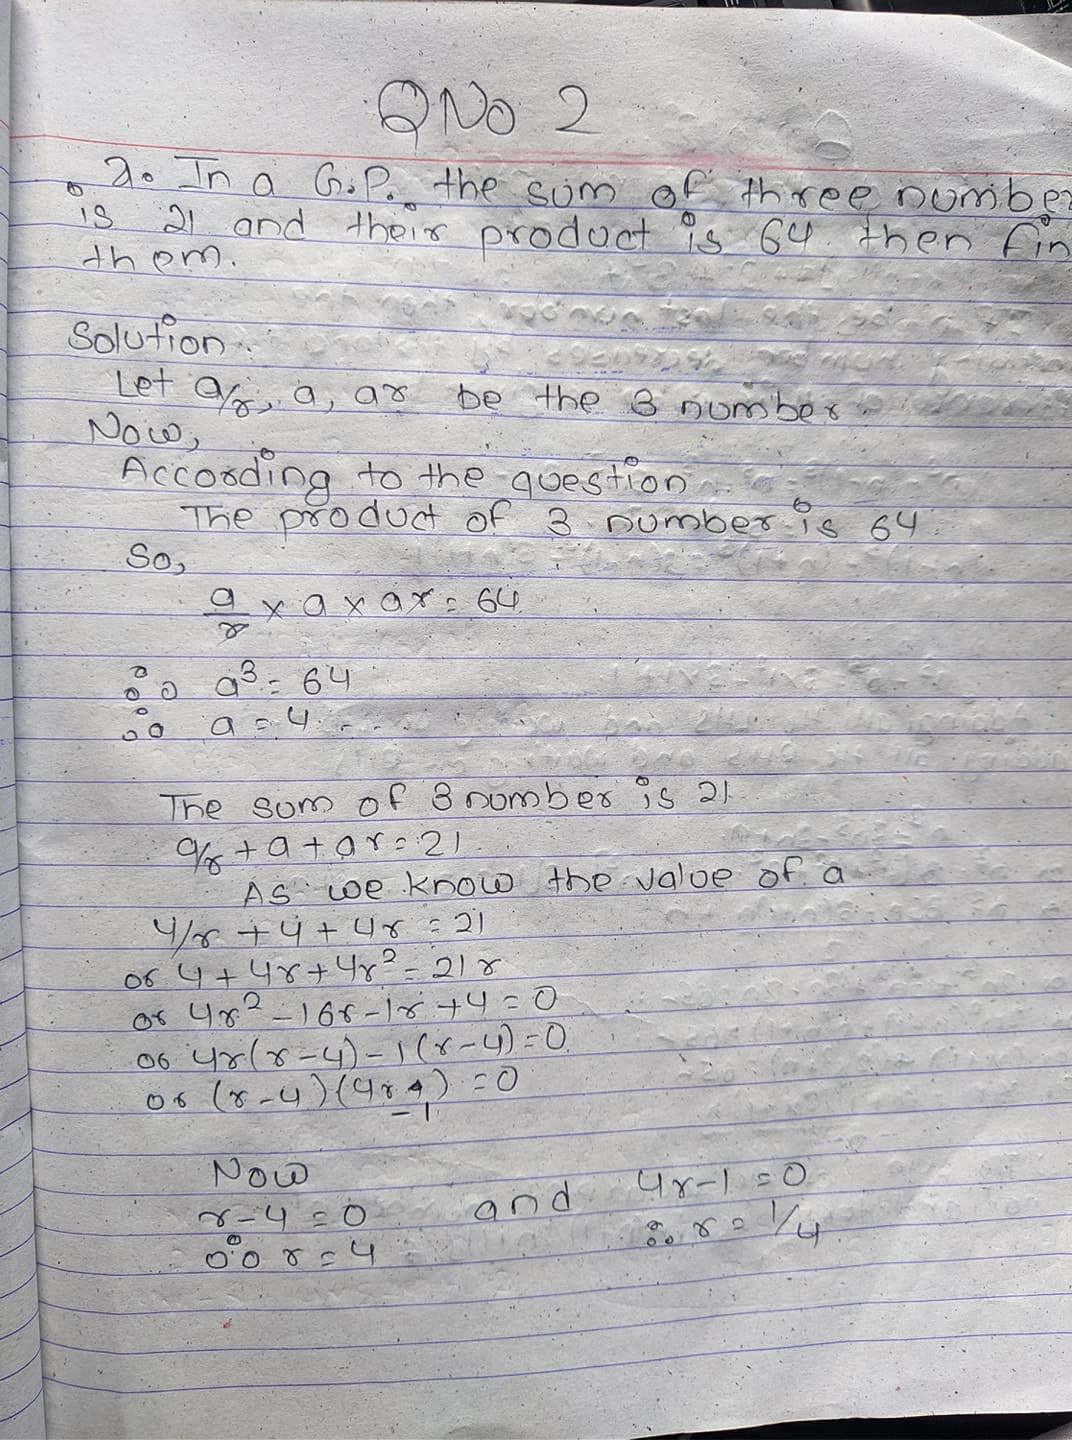 QNo 2
2. In a G.P. the sum of three number
is 21 and their product is 64 then fin
them.
Solution:
Let a/r, a, ar be the 3 number
Now,
According to the question
The product of 3 number is 64
So,
a/r × a × ar = 64
∴ a³ = 64
∴ a = 4
The sum of 3 number is 21
a/r + a + ar = 21
As we know the value of a
4/r + 4 + 4r = 21
or 4 + 4r + 4r² = 21r
or 4r² - 16r - 1r + 4 = 0
or 4r(r-4) - 1(r-4) = 0
or (r-4)(4r-1) = 0
Now
r-4 = 0 and 4r-1 = 0
∴ r = 4 ∴ r = 1/4